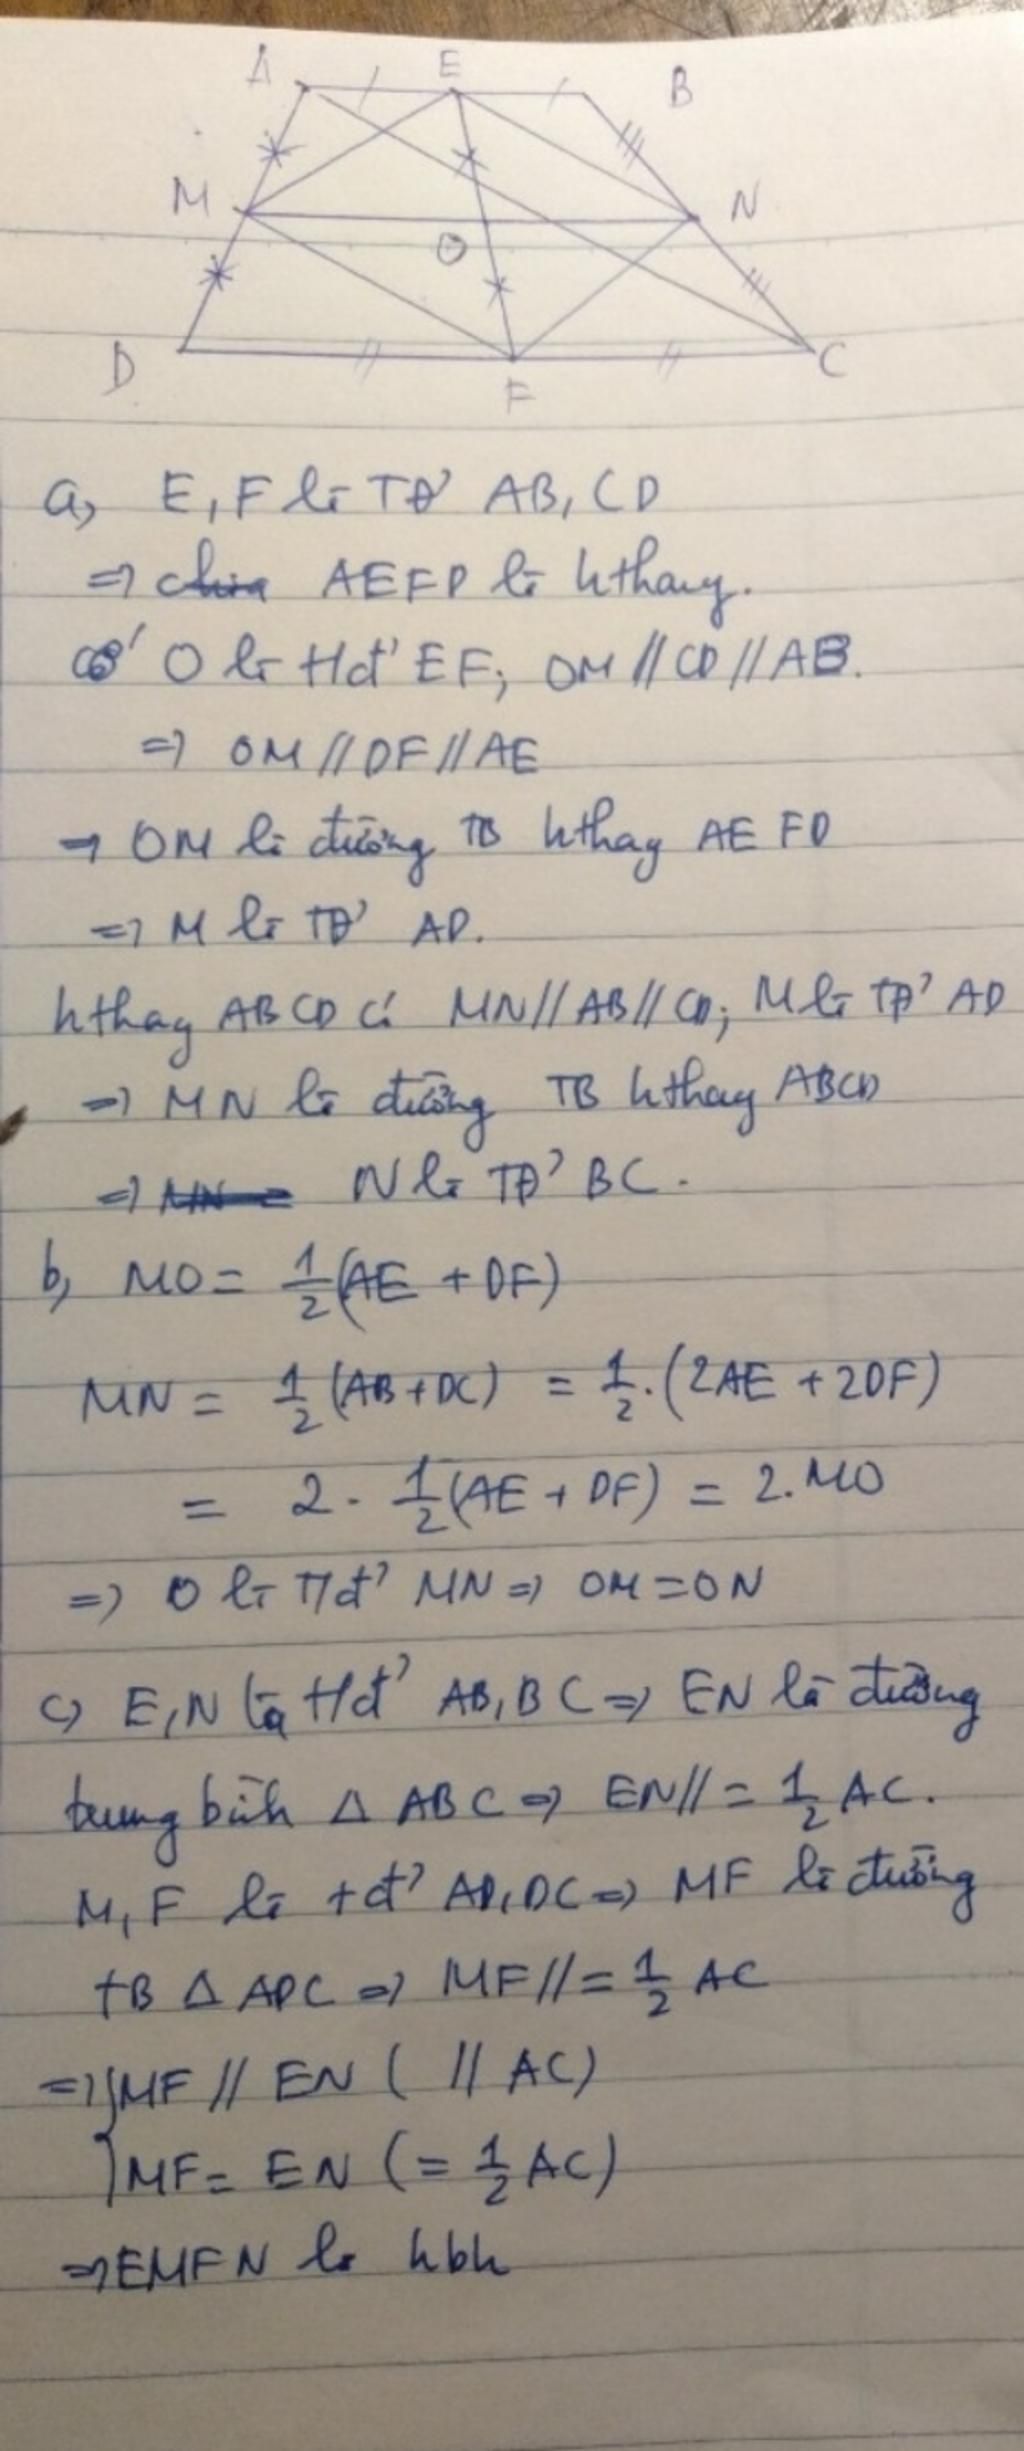 A E B
M N
O
D F C
a, E, F là TĐ' AB, CD
=> AEFD là hthang.
có O là tđ' EF; OM // CD // AB.
=> OM // DF // AE
=> OM là đường TB hthag AEFD
=> M là TĐ' AD.
hthag ABCD có MN // AB // CD; M là TĐ' AD
=> MN là đường TB hthag ABCD
=> N là TĐ' BC.
b, MO = 1/2 (AE + DF)
MN = 1/2 (AB + DC) = 1/2 . (2AE + 2DF)
= 2 . 1/2 (AE + DF) = 2. MO
=> O là Tđ' MN => OM = ON
c) E, N là tđ' AB, BC => EN là đường
trung bình Δ ABC => EN // = 1/2 AC.
M, F là tđ' AD, DC => MF là đường
tB Δ ADC => MF // = 1/2 AC
=> { MF // EN ( // AC)
MF = EN (= 1/2 AC)
=> EMFN là hbh